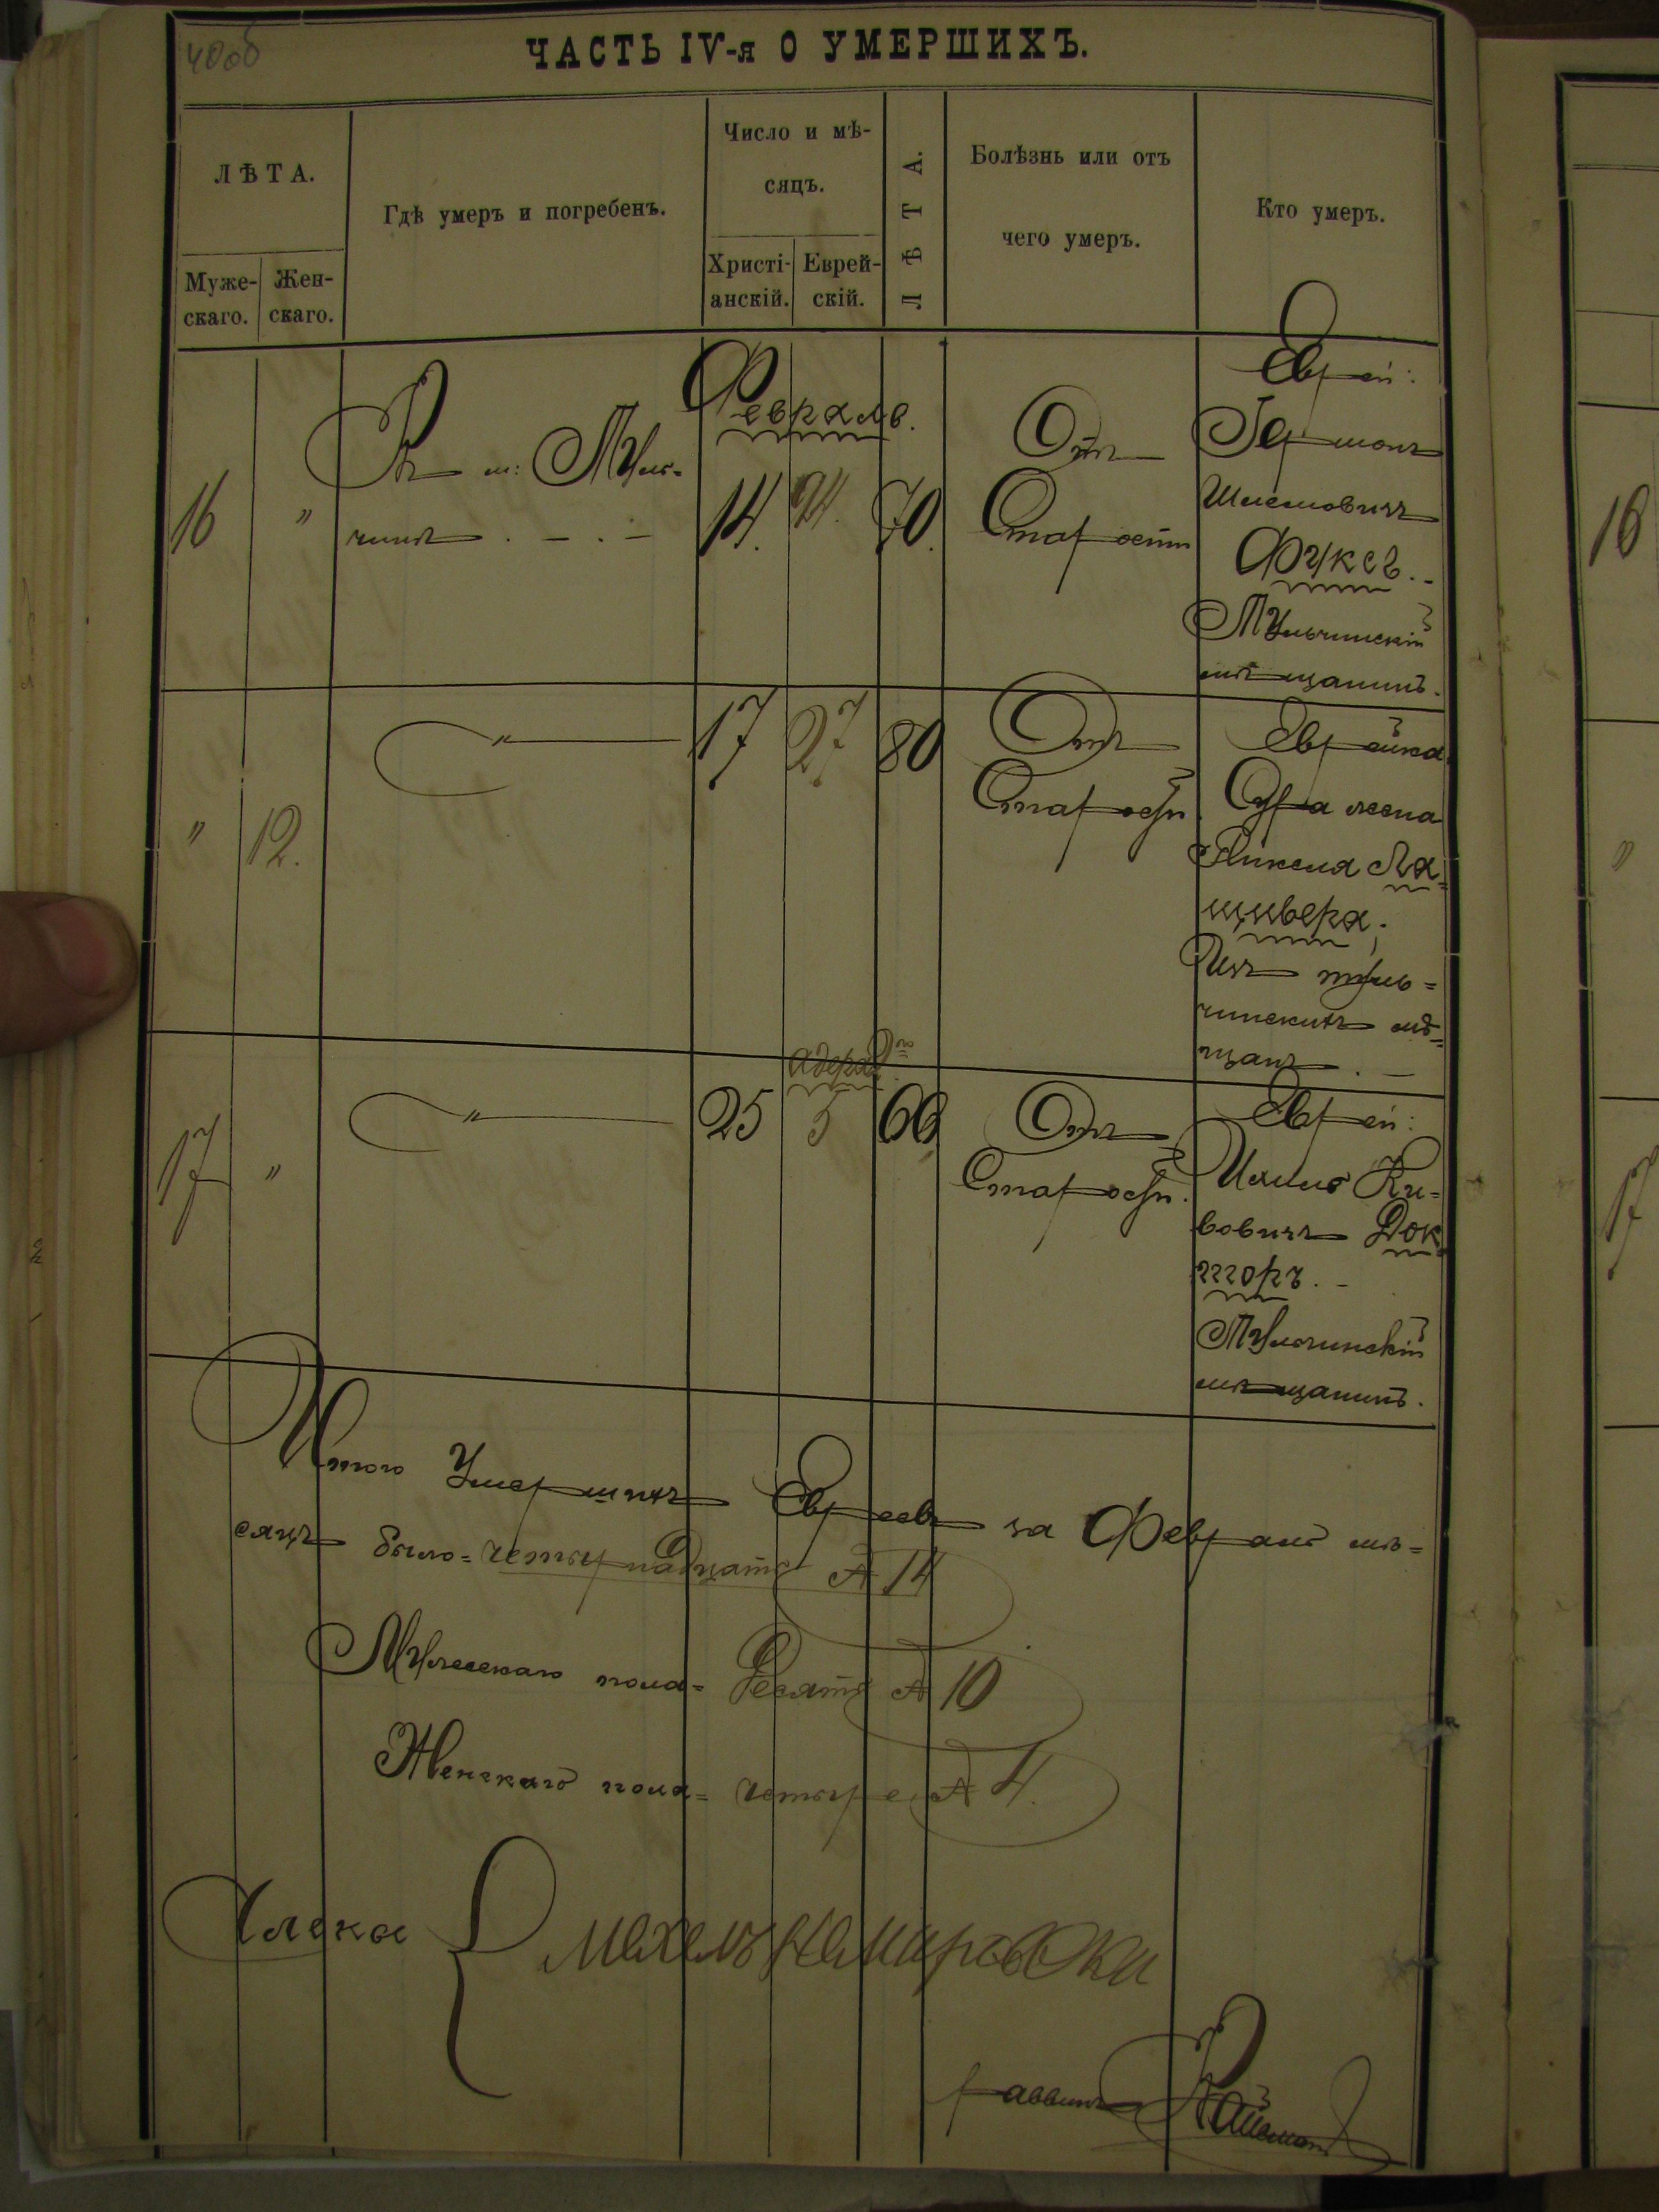 40об
ЧАСТЬ IV-я О УМЕРШИХЪ.
ЛѢТА.
Муже-
скаго.
Жен-
скаго.
Гдѣ умеръ и погребенъ.
Число и мѣ-
сяцъ.
Христі-
анскій.
Еврей-
скій.
ЛѢТА.
Болѣзнь или отъ
чего умеръ.
Кто умеръ.
16
"
Въ м: Туль-
чинѣ . — . —
Февраль.
14.
24.
70.
Отъ
Старости
Еврей:
Гершонъ
Шлемовичъ
Фуксъ. –
Тульчинскій
мѣщанинъ.
"
12.
"
17
27
80
Отъ
Старости.
Еврейка
Сура жена
Нихеля Ла-
щивера;
Изъ туль-
чинскихъ мѣ-
щанъ . —
17
"
"
25
адера 2го
5
66
Отъ
Старости.
Еврей:
Ки-
вовичъ Док-
торъ. –
Тульчинскій
мѣщанинъ.
Итого Умершихъ Евреевъ за Февраль мѣ-
сяцъ было= четырнадцать А 14
Мужескаго пола= десять А 10
Женскаго пола= четыре А 4.
Члены
раввинъ
16
"
17